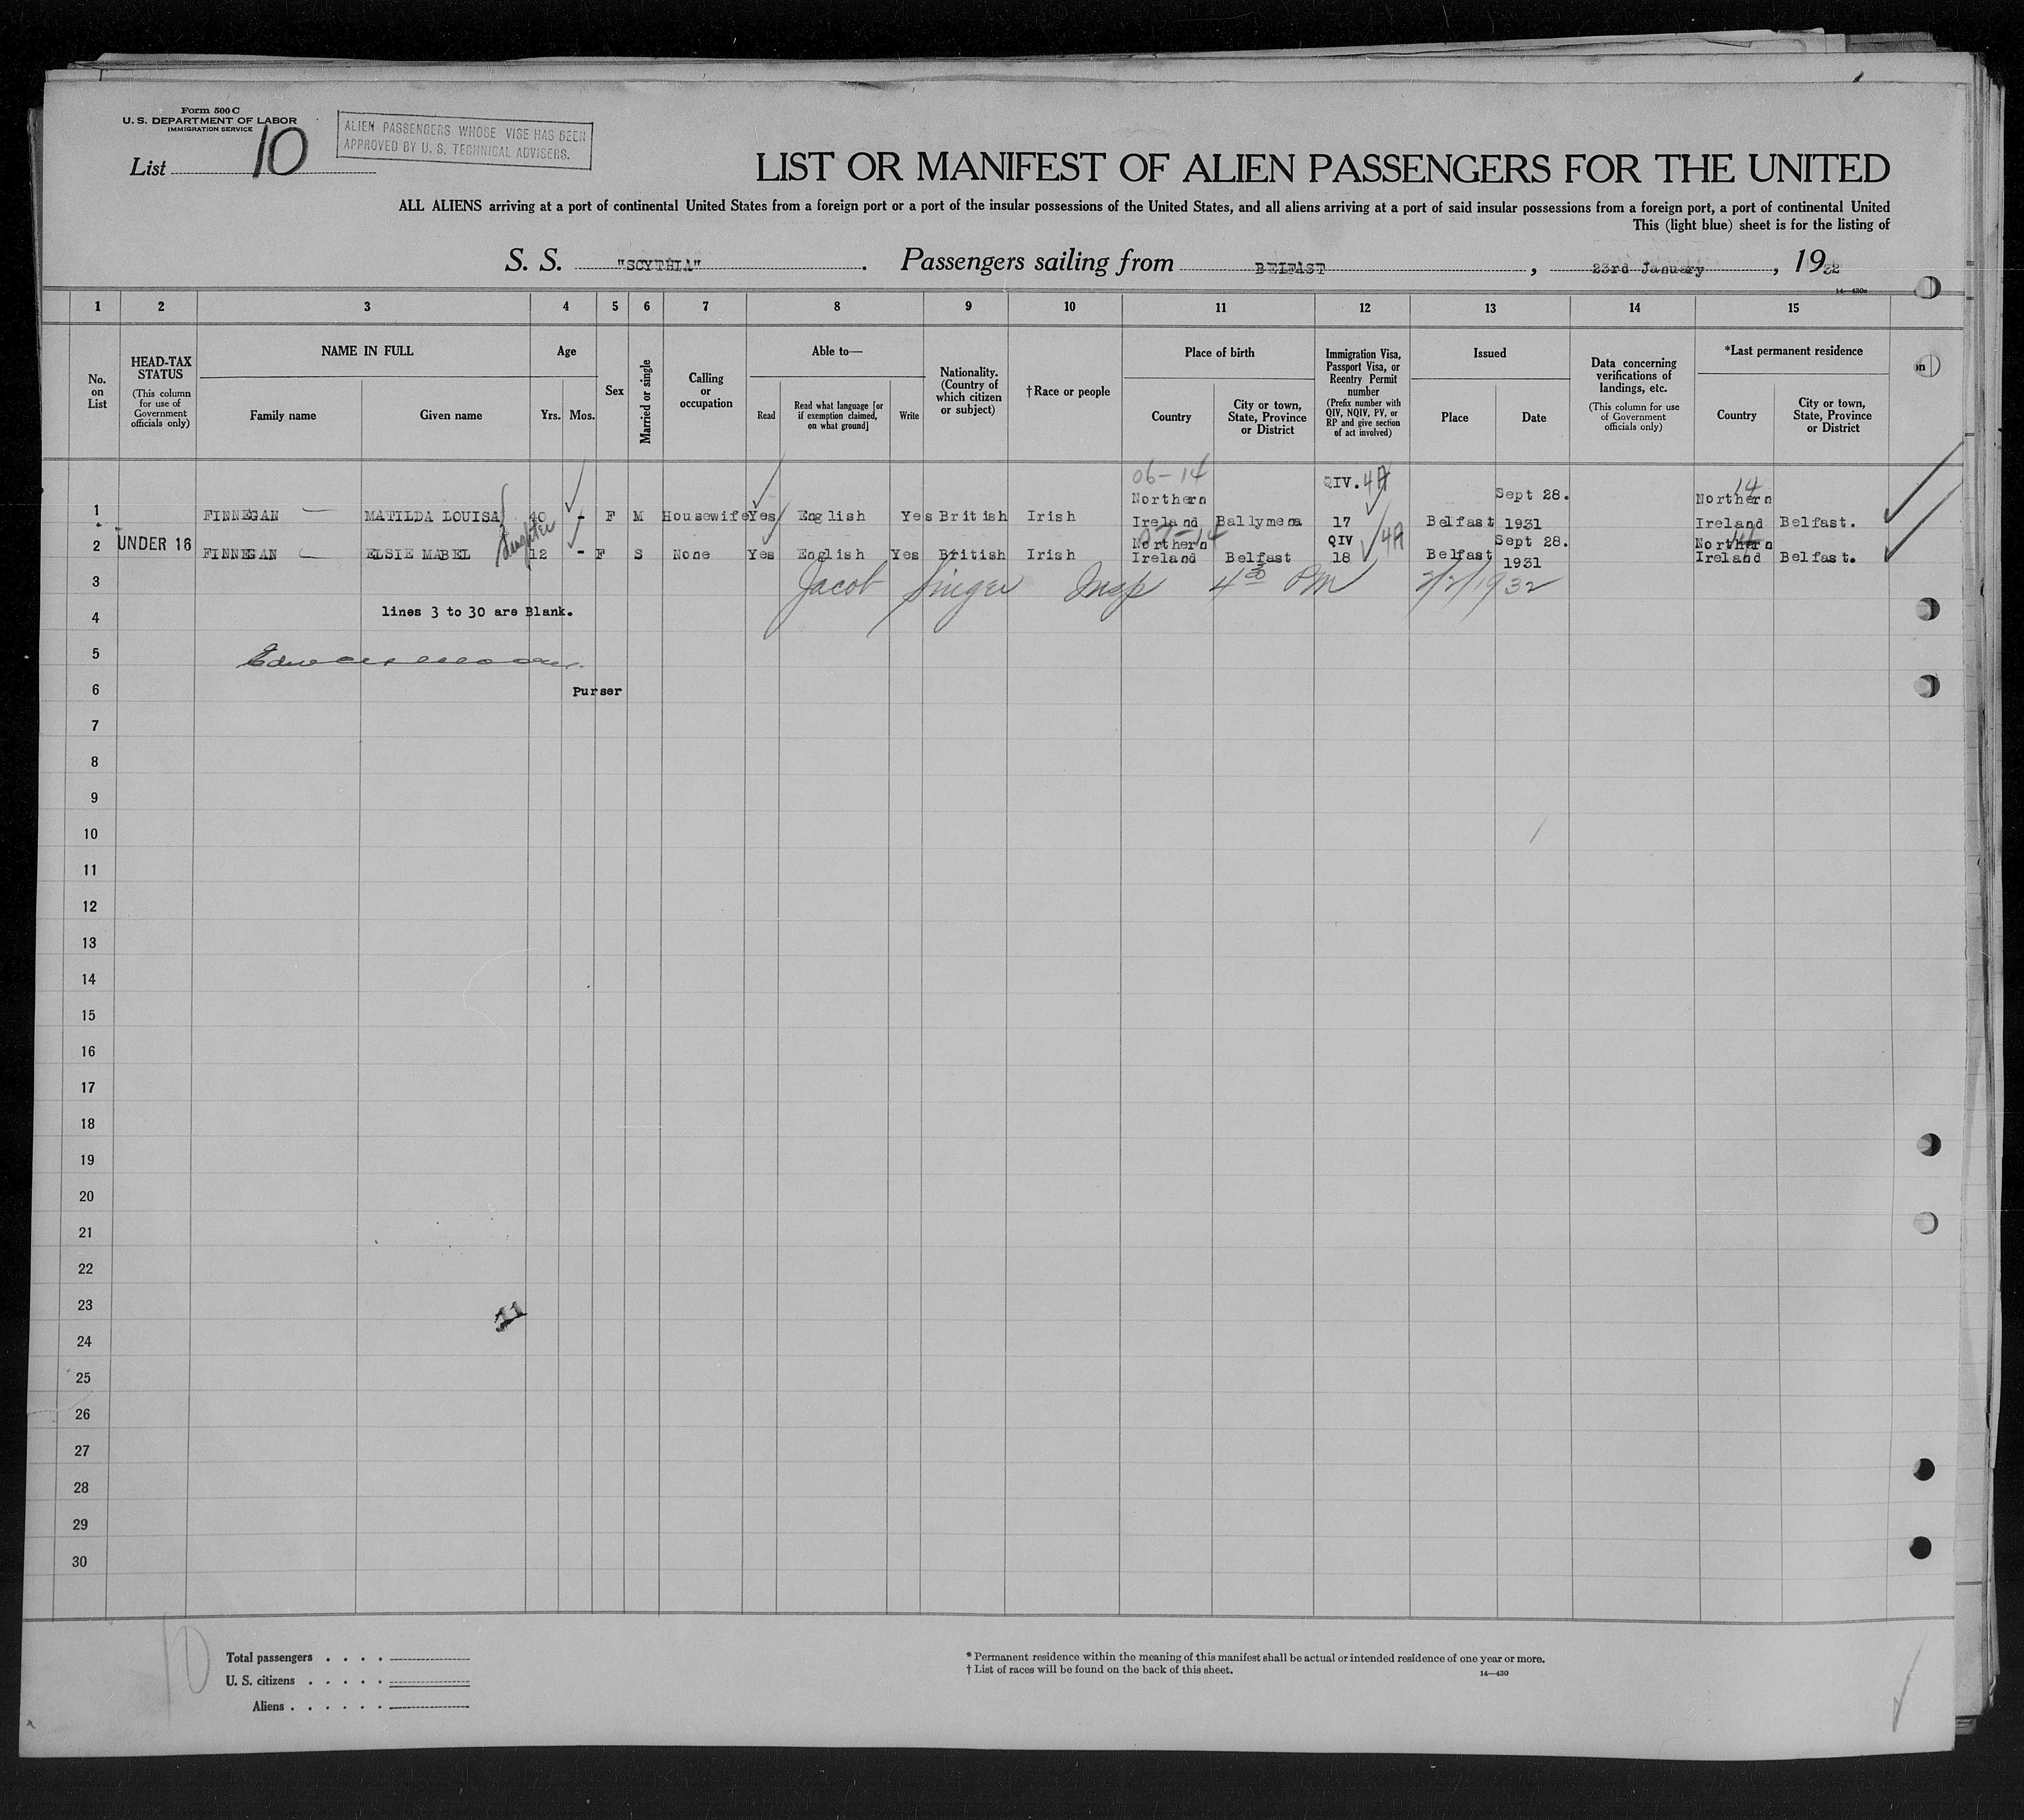 Form 500 C
U. S. DEPARTMENT OF LABOR
IMMIGRATION SERVICE
List 10
ALIEN PASSENGERS WHOSE VISE HAS BEEN
APPROVED BY U. S. TECHNICAL ADVISERS.
LIST OR MANIFEST OF ALIEN PASSENGERS FOR THE UNITED
ALL ALIENS arriving at a port of continental United States from a foreign port or a port of the insular possessions of the United States, and all aliens arriving at a port of said insular possessions from a foreign port, a port of continental United
This (light blue) sheet is for the listing of
S. S. "SCYTHIA". Passengers sailing from BELFAST, 23rd January, 1932
14—430c
1 2 3 4 5 6 7 8 9 10 11 12 13 14 15
No. on List
HEAD-TAX STATUS
(This column for use of Government officials only)
NAME IN FULL
Family name Given name
Age
Yrs. Mos.
Sex
Married or single
Calling or occupation
Able to—
Read
Read what language [or if exemption claimed, on what ground]
Write
Nationality. (Country of which citizen or subject)
†Race or people
Place of birth
Country
City or town, State, Province or District
Immigration Visa, Passport Visa, or Reentry Permit number
(Prefix number with QIV, NQIV, PV, or RP and give section of act involved)
Issued
Place Date
Data concerning verifications of landings, etc.
(This column for use of Government officials only)
*Last permanent residence
Country
City or town, State, Province or District
06-14 QIV. 4A 14
1 FINNEGAN MATILDA LOUISA 40 - F M Housewife Yes English Yes British Irish Northern Ireland Ballymena 17 Belfast Sept 28. 1931 Northern Ireland Belfast.
daughter
07-14 QIV 4A 14
2 UNDER 16 FINNEGAN ELSIE MABEL 12 - F S None Yes English Yes British Irish Northern Ireland Belfast 18 Belfast Sept 28. 1931 Northern Ireland Belfast.
3 Jacob Singer Insp 4 30 PM 2/2/1932
4 lines 3 to 30 are Blank.
5
6 Purser
7
8
9
10
11
12
13
14
15
16
17
18
19
20
21
22
23
24
25
26
27
28
29
30
10
Total passengers . . . .
U. S. citizens . . . . .
Aliens . . . . . .
* Permanent residence within the meaning of this manifest shall be actual or intended residence of one year or more.
† List of races will be found on the back of this sheet.
14—430